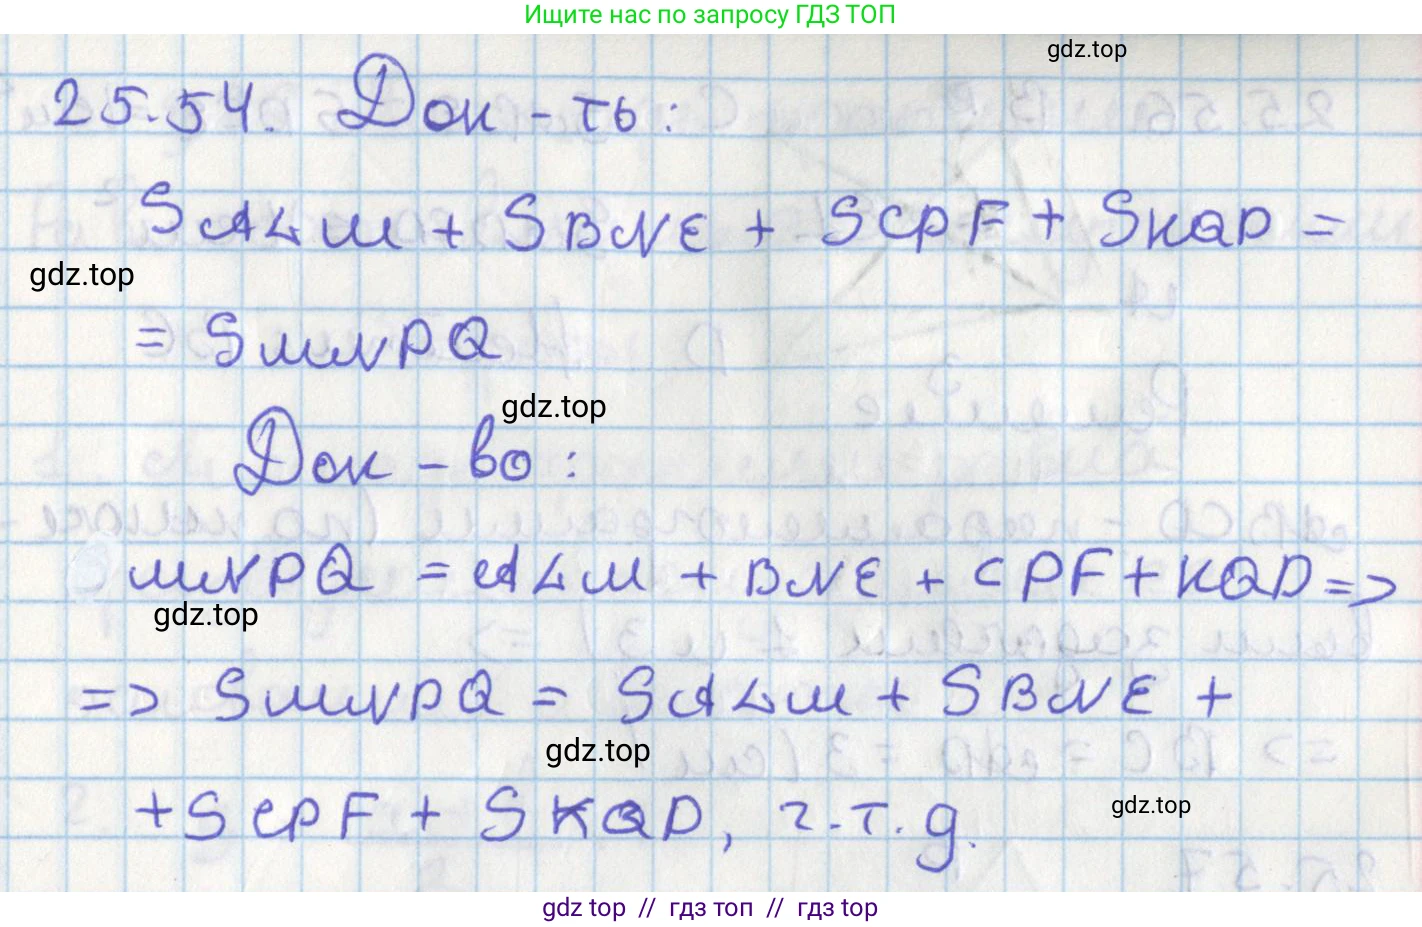 Ищите нас по запросу ГДЗ ТОП
gdz.top
25.54. Док-ть:
SALM + SBNE + SCPF + SKQD =
gdz.top
= SMNPQ
gdz.top
Док-во:
MNPQ = ALM + BNE + CPF + KQD =>
gdz.top
=> SMNPQ = SALM + SBNE +
gdz.top
+ SCPF + SKQD, ч.т.д.
gdz.top
gdz top // гдз топ // гдз top